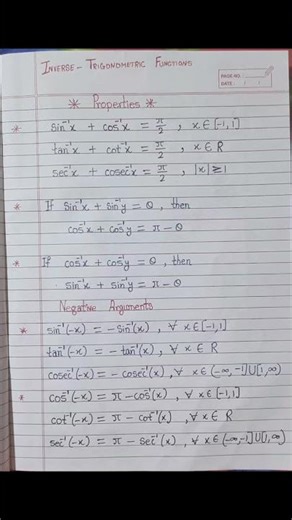 INVERSE - TRIGONOMETRIC FUNCTIONS
PAGE NO.:
DATE: / /
* Properties *
* sin⁻¹x + cos⁻¹x = π/2 , x ∈ [-1,1]
tan⁻¹x + cot⁻¹x = π/2 , x ∈ R
sec⁻¹x + cosec⁻¹x = π/2 , |x| ≥ 1
* If sin⁻¹x + sin⁻¹y = θ, then
cos⁻¹x + cos⁻¹y = π - θ
* If cos⁻¹x + cos⁻¹y = θ, then
sin⁻¹x + sin⁻¹y = π - θ
Negative Arguments
* sin⁻¹(-x) = - sin⁻¹(x), ∀ x ∈ [-1,1]
tan⁻¹(-x) = - tan⁻¹(x), ∀ x ∈ R
cosec⁻¹(-x) = - cosec⁻¹(x), ∀ x ∈ (-∞, -1] U [1, ∞)
* cos⁻¹(-x) = π - cos⁻¹(x), ∀ x ∈ [-1,1]
cot⁻¹(-x) = π - cot⁻¹(x), ∀ x ∈ R
sec⁻¹(-x) = π - sec⁻¹(x), ∀ x ∈ (-∞, -1] U [1, ∞)